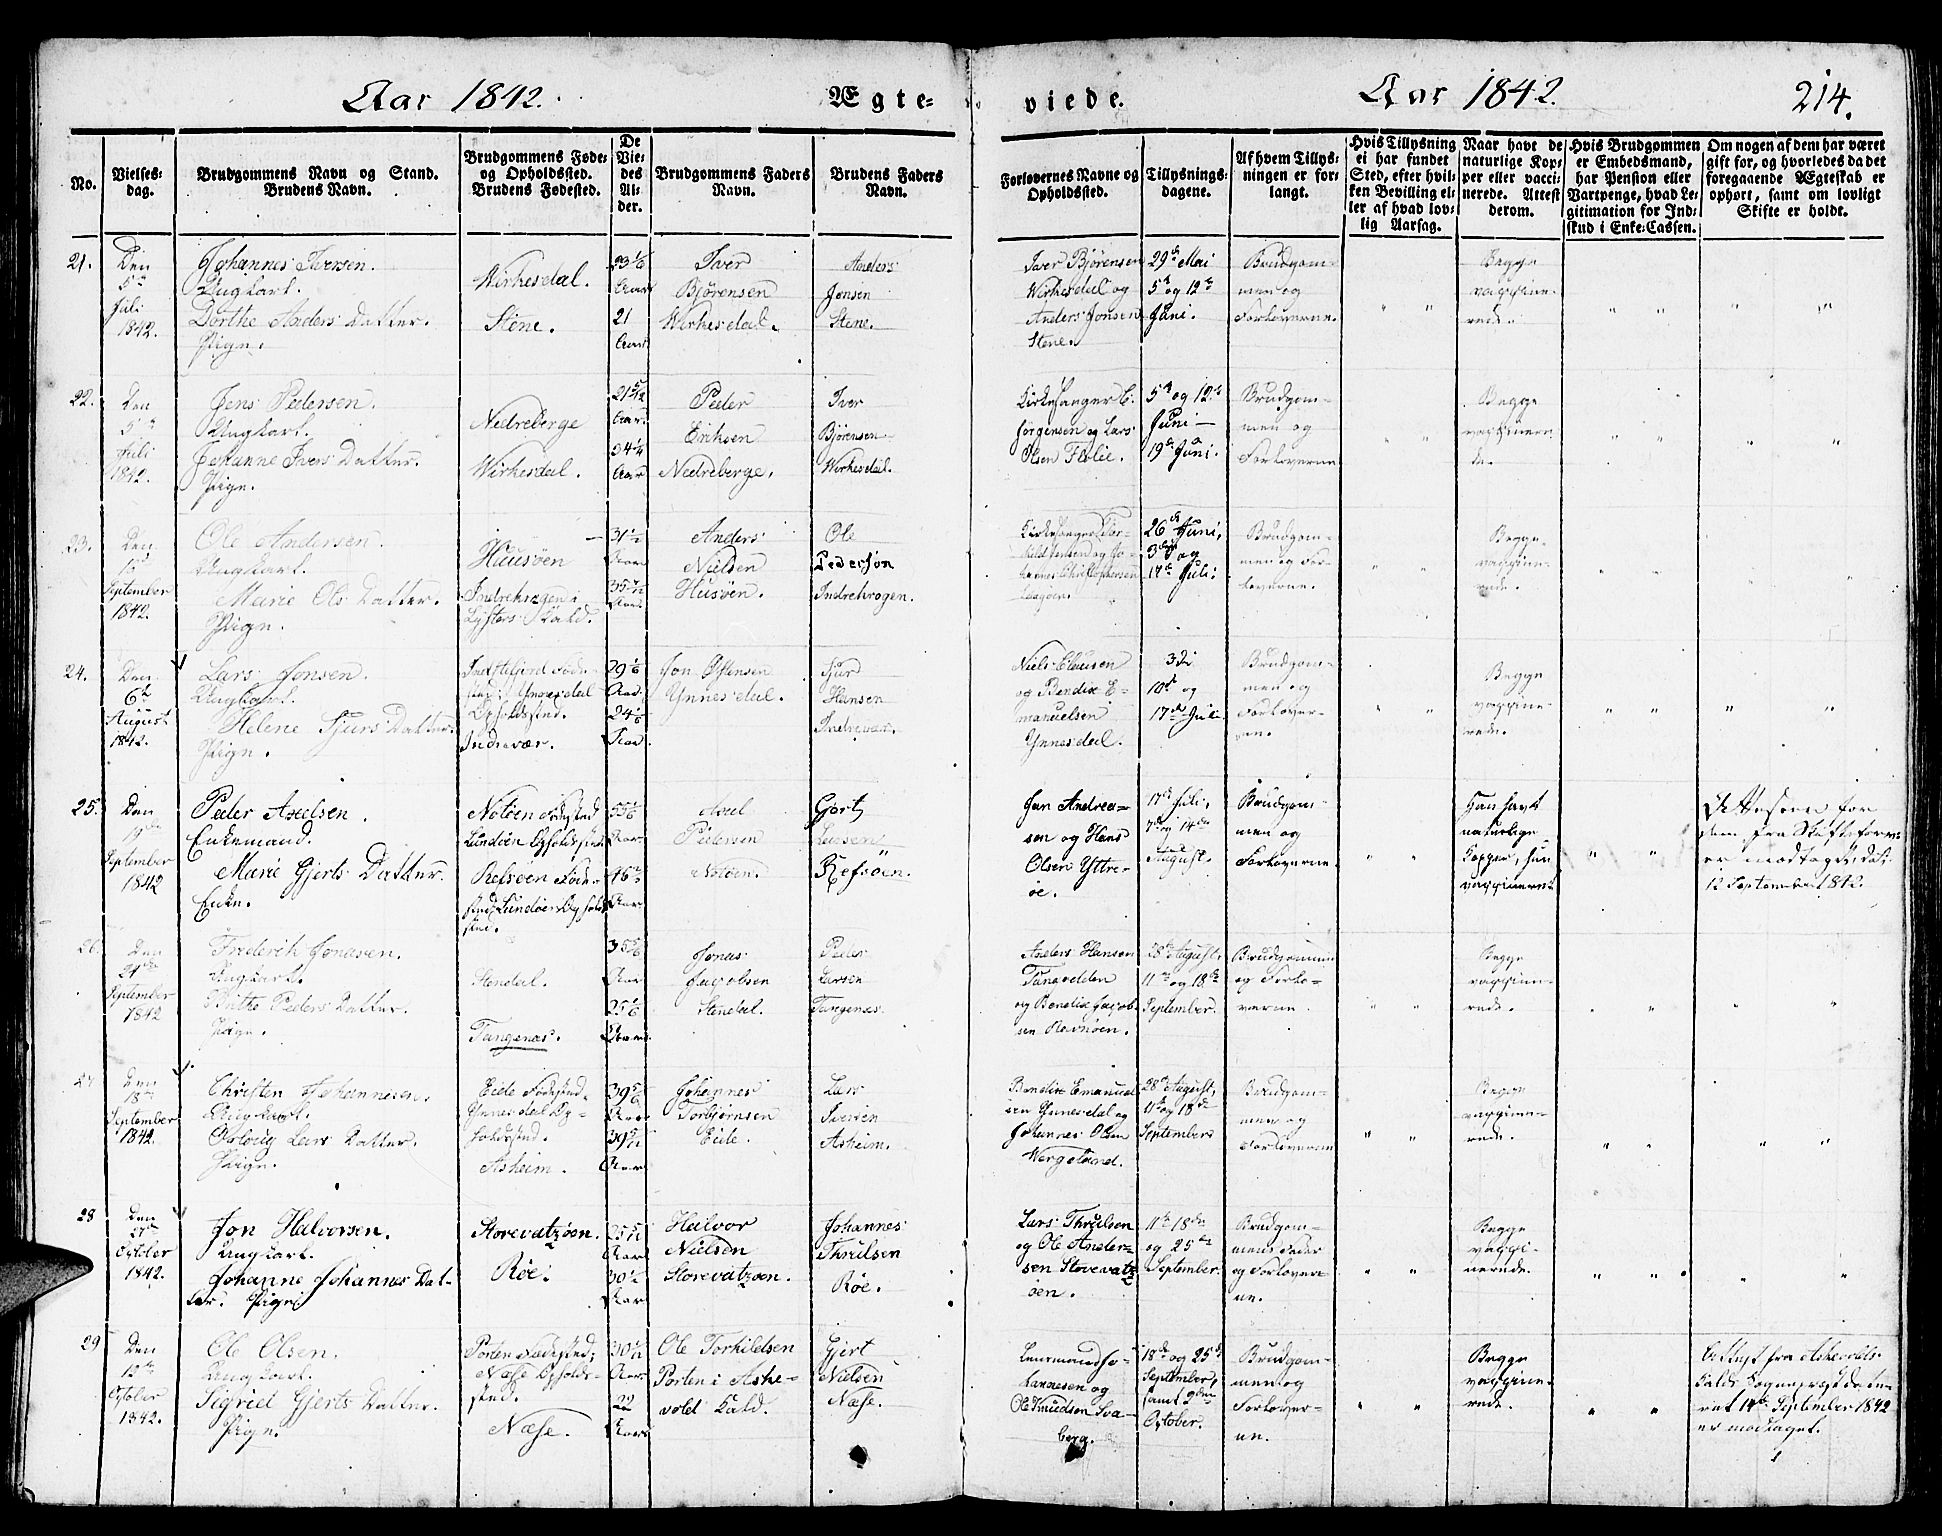 Aar 1842.
Ægte-
viede.
Aar 1842.
214.
No.
Vielses-
dag.
Brudgommens Navn og Stand.
Brudens Navn.
Brudgommens Føde-
og Opholdssted.
Brudens Fødested.
De
Vie-
des
Al-
der.
Brudgommens Faders
Navn.
Brudens Faders
Navn.
Forlovernes Navne og
Opholdssted.
Tillysnings-
dagene.
Af hvem Tillys-
ningen er for-
langt.
Hvis Tillysning
ei har fundet
Sted, efter hvil-
ken Bevilling el-
ler af hvad lov-
lig Aarsag.
Naar havt de
naturlige Kop-
per eller vacci-
nerede. Attest
derom.
Hvis Brudgommen
er Embedsmand,
har Pension eller
Vartpenge, hvad Le-
gitimation for Ind-
skud i Enke-Cassen.
Om nogen af dem har været
gift før, og hvorledes da det
foregaaende Ægteskab er
ophørt, samt om lovligt
Skifte er holdt.
21.
Den
5te
Juli
1842.
Johannes Iversen.
Ungkarl.
Dorthe Anders Datter.
Pige.
Wirkesdal.
Stene.
23 1/6
Aar
21
Aar
Iver
Bjørensen
Wirkesdal.
Anders
Jonsen
Stene.
Iver Bjørensen
Wirkesdal og
Anders Jonsen
Stene.
29de Mai
5te og 12te
Juni.
Brudgom-
men og
Forloverne.
Begge
vaccine-
rede.
22.
Den
5te
Juli
1842.
Jens Pedersen.
Ungkarl.
Johanne Ivers Datter.
Pige.
Nedreberge
Wirkesdal.
Aar.
Aar
Peder
Eriksen
Nedreberge.
Iver
Bjørensen
Wirkesdal.
Kirkesanger E.
Jørgensen og Lars
Olsen Flolie.
5te og 12te
Juni
19de Juni.
Brudgom-
men og
Forloverne
Begge
vaccinere
de.
23.
Den
September
1842.
Ole Andersen
Ungkarl.
Marie Ols Datter.
Pige.
Huusøen
Indrehrogen i
Lysters Kald.
31 1/2
Aar
Aar.
Anders
Nielsen
Husøen.
Ole
Pedersøn
Indrehrogen.
Kirkesanger Tor-
kild Jensen og Jo-
hannes Christophersen
26de Juni,
3die og
17de Juli.
Brudgom-
men og For-
loverne.
Begge
vaccine-
rede.
24.
Den
6te
August
1842.
Lars Jonsen.
Ungkarl.
Helene Sjurs Datter.
Pige.
Indstefjord Føde-
sted; Ynnesdal
Opholdssted.
Indrevær.
29 1/6
Aar.
24 1/6
Aar.
Jon Østensen
Ynnesdal.
Sjur
Hansen
Indrevær.
Niels Clausen
og Bendix E-
manuelsen
Ynnesdal.
3die
10de og
17de Juli
Brudgom-
men og
Forlover-
ne.
Begge
vaccine-
rede.
25.
Den
September
1842
Peder Axelsen.
Enkemand.
Marie Gjerts Datter.
Enke.
Notøen Fødested
Lundøen Opholdssted
Refsøen Føde-
sted, Lundøen Ophold
sted.
55 1/6
Aar
Aar
Axel
Pedersen
Notøen.
Gjert
Larsen
Refsøen.
Jan Andrea-
sen og Hans
Olsen Yttre-
øe.
17de Juli,
7de og 14de
August.
Brudgom-
men og
Forloverne
Han havt
naturlige
Kopper, hun
vaccineret
Attesten for
dem fra Skifteforv.
er modtaget, dat.
12 September 1842.
26.
Den
21de
September
1842
Frederik Jonasen.
Ungkarl.
Brithe Peders Datter.
Pige.
Stendal.
Tangenæs.
35 5/6
Aar
25 1/6
Aar.
Jonas
Jacobsen
Stendal.
Peder
Larsen
Tangenæs
Anders Hansen
Tangedden
og Bendix Jacob-
sen Ravnøen.
28de August,
11te og 18de
September.
Brudgommen
og Forlo-
verne.
Begge
vaccine-
rede.
27
Den
18de
September
1842.
Christen Johannesen.
Ungkarl.
Oslaug Lars Datter.
Pige.
Eide Fødested,
Ynnesdal Op-
holdssted.
Asheim.
39 5/6
Aar
Aar
Johannes
Torbjørnsen
Eide.
Lars
Iversen
Asheim.
Bendix Emanuel
sen Ynnesdal og
Johannes Olsen
Wergeland.
28de August,
11te og 18de
September
Brudgom-
men og
Forloverne
Begge
vaccine-
rede.
28
Den
October
1842.
Jon Halvorsen.
Ungkarl.
Johanne Johannes Dat-
ter. Pige.
Storevatzøen.
Røe.
Aar
30 1/2
Aar
Halvor
Nielsen
Storevatzøen.
Johannes
Thrulsen
Røe.
Lars Thrulsen
og Ole Ander-
sen Storevatz
øen.
11te 18de
og 25de
September.
Brudgom-
mens Fader
og Forlover-
ne.
Begge
vacci-
nerede.
29
Den
12te
October
1842.
Ole Olsen.
Ungkarl.
Sigrid Gjerts Datter.
Pige.
Porten Fødested;
Næse Opholds-
sted.
Næse.
Aar.
22
Aar
Ole Torkildsen
Porten i Aske-
vold Kald.
Gjert
Nielsen
Næse.
Lensmand Jo-
hannesen og
Ole Knudsen Sva-
berg.
18de og 25de
September,
samt 9den
October.
Brudgom-
men og
Forlover-
ne.
Begge
vaccine-
rede.
Attest fra Askevolds
Kalds Sognepræst date-
ret 14de September 1842
er modtaget.